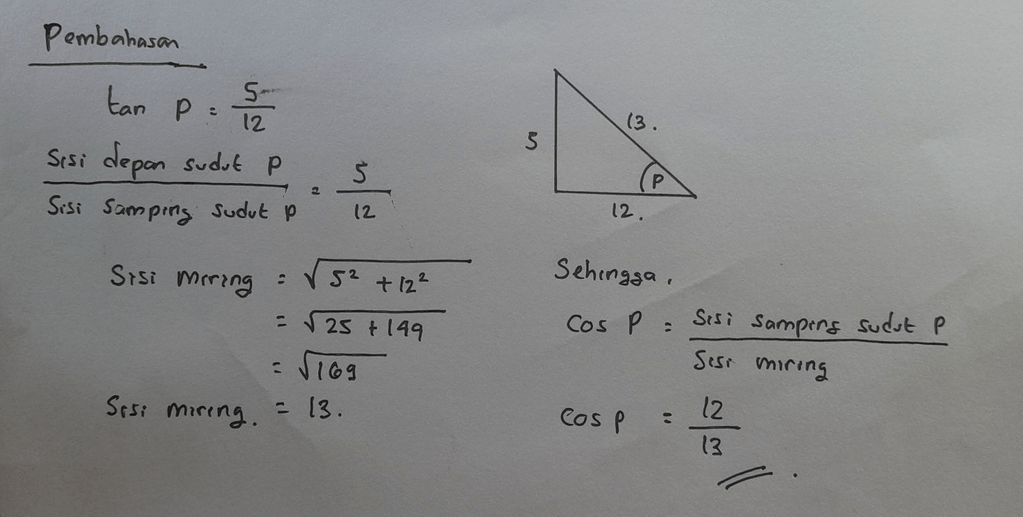 Pembahasan
tan P = 5/12
Sisi depan sudut P / Sisi samping sudut P = 5/12
Sisi miring = √5² + 12²
= √25 + 144
= √169
Sisi miring. = 13.
5
13.
P
12.
Sehingga,
Cos P = Sisi samping sudut P / Sisi miring
Cos P = 12/13